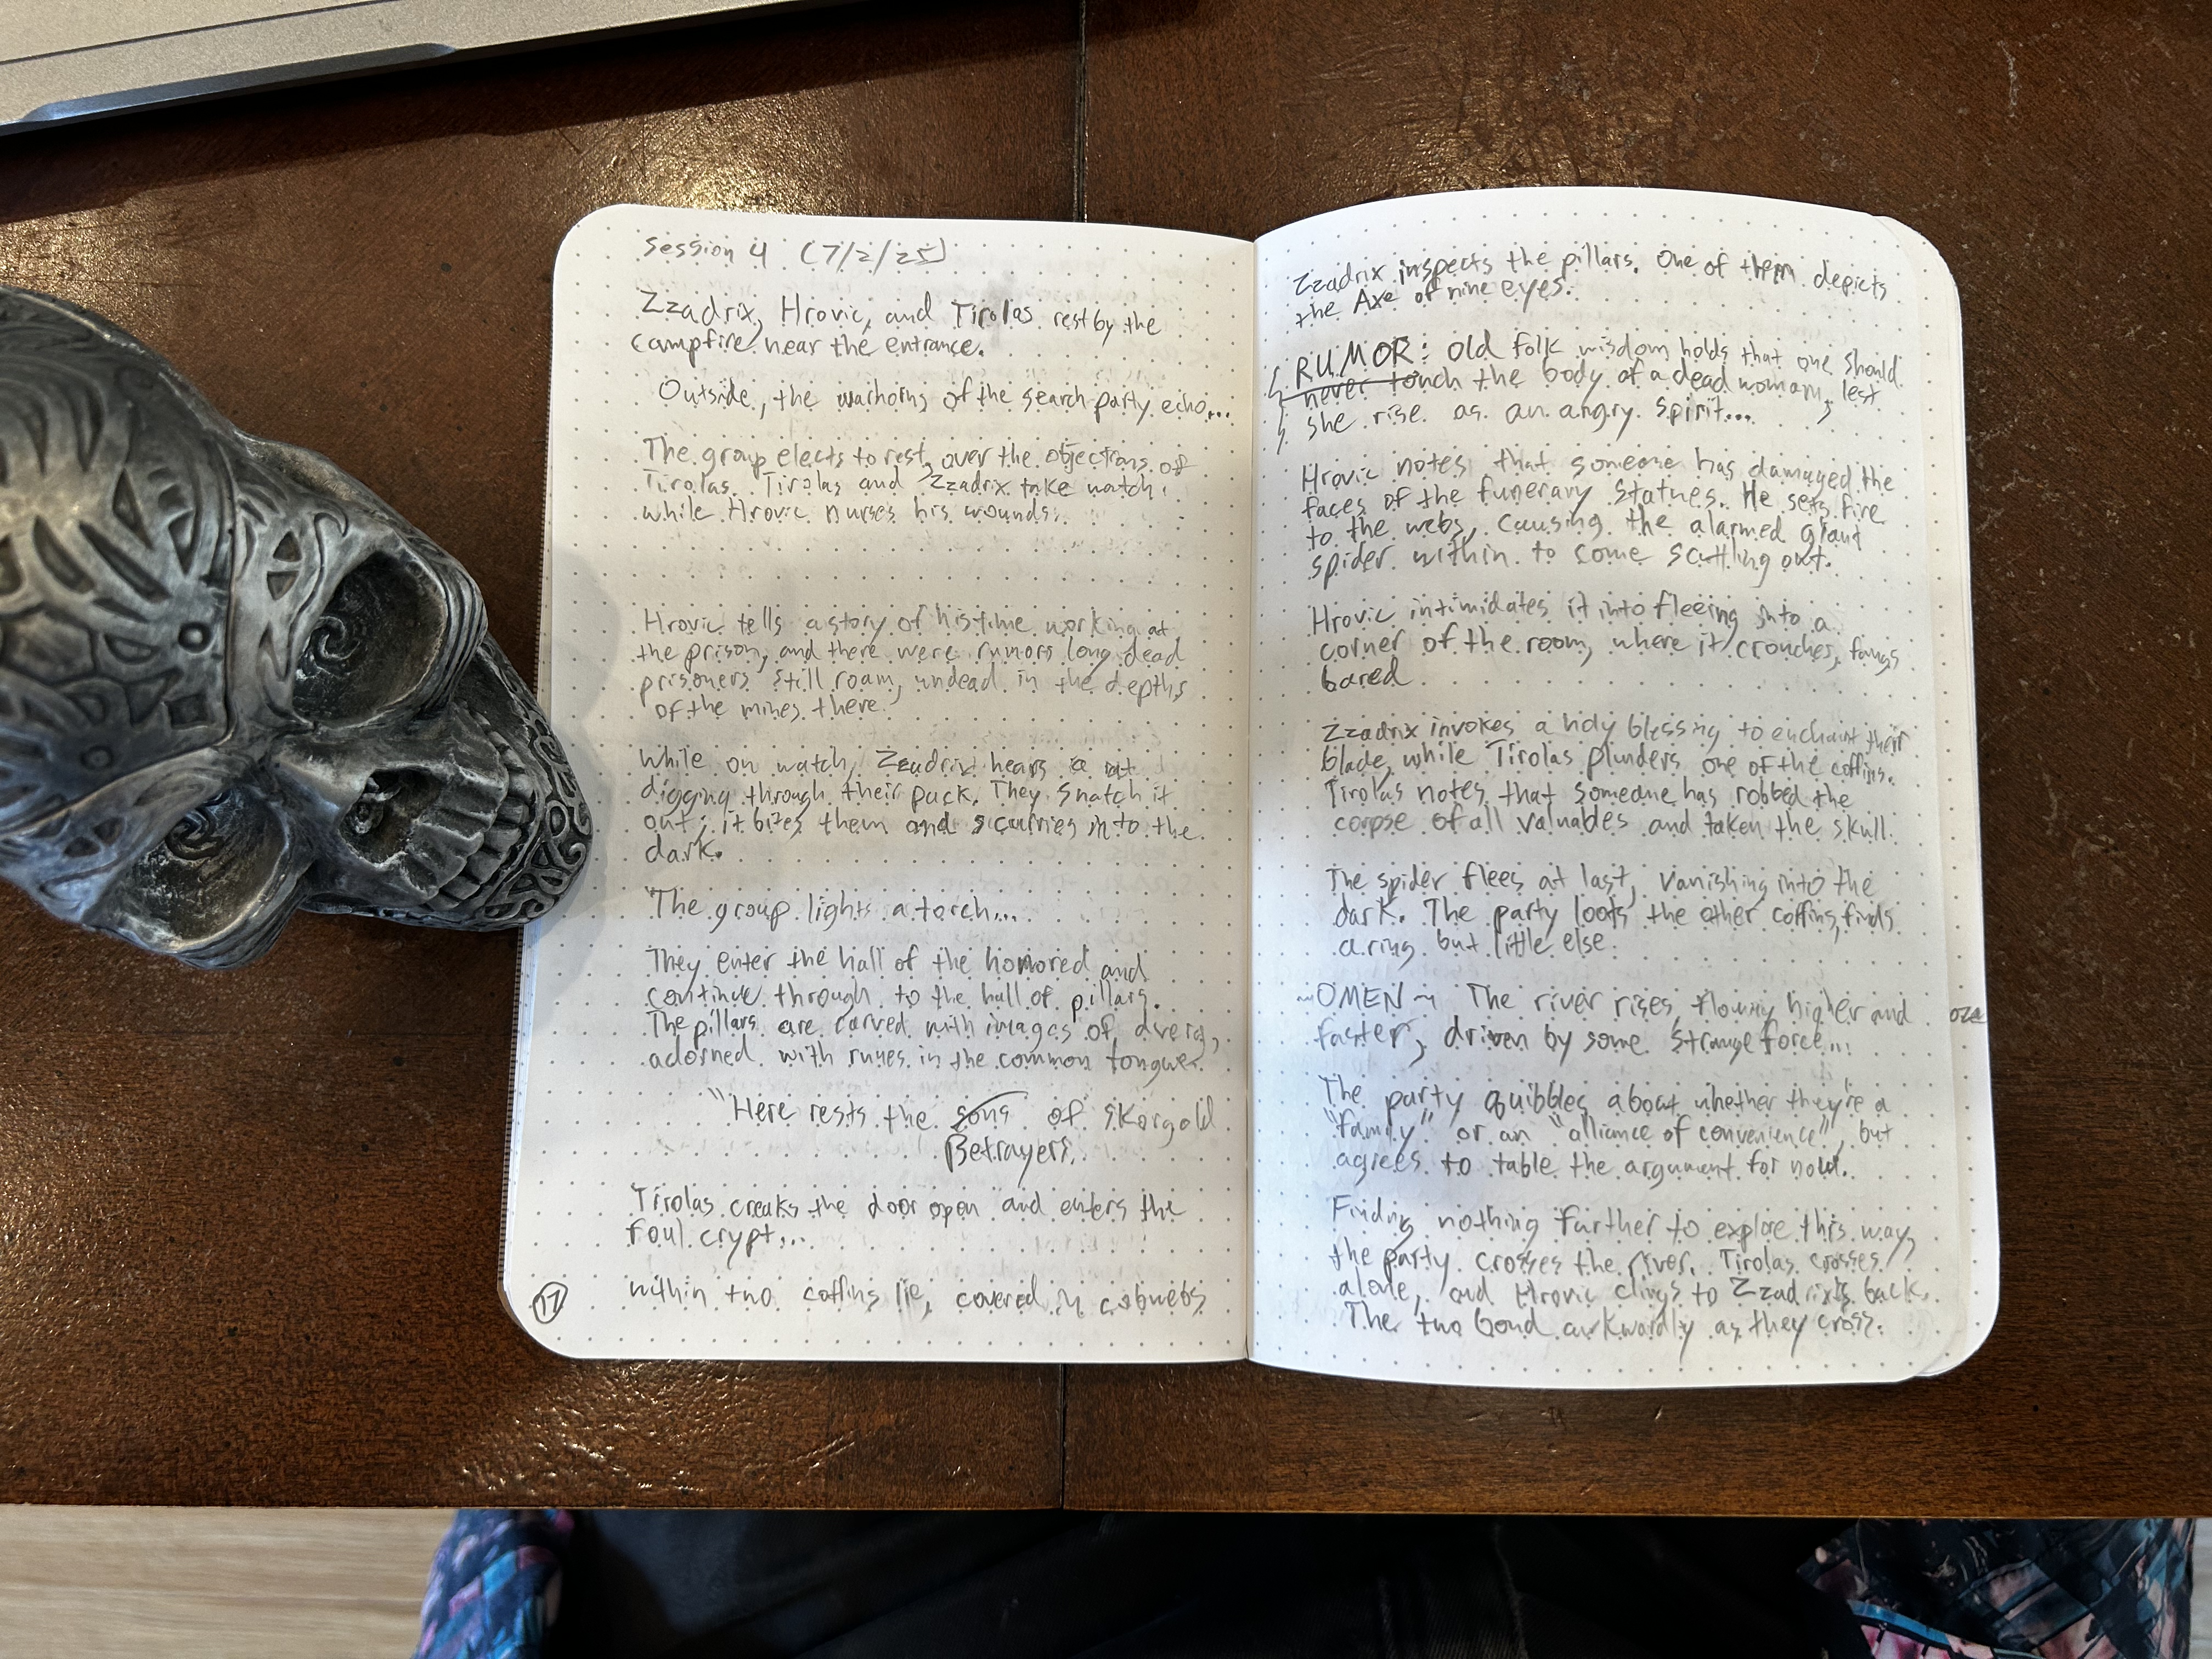 Session 4 (7/2/25)
Zzadrix, Hrovic, and Tirolas rest by the
campfire near the entrance.
Outside, the warhorns of the search party echo...
The group elects to rest, over the objections of
Tirolas. Tirolas and Zzadrix take watch
while Hrovic nurses his wounds.
Hrovic tells a story of his time working at
the prison, and there were rumors long dead
prisoners still roam, undead in the depths
of the mines there.
While on watch, Zzadrix hears a rat
digging through their pack. They snatch it
out; it bites them and scurries into the
dark.
The group lights a torch...
They enter the hall of the honored and
continue through to the hall of pillars.
The pillars are carved with images of
adorned with runes in the common tongue.
"Here rests the sons of Skorgold
Betrayers.
Tirolas creaks the door open and enters the
foul crypt...
within two coffins lie, covered in cobwebs
17
Zzadrix inspects the pillars. One of them depicts
the Axe of nine eyes.
RUMOR: Old folk wisdom holds that one should
never touch the body of a dead woman, lest
she rise as an angry spirit...
Hrovic notes that someone has damaged the
faces of the funerary statues. He sets fire
to the webs, causing the alarmed giant
spider within to come scuttling out.
Hrovic intimidates it into fleeing into a
corner of the room, where it crouches, fangs
bared
Zzadrix invokes a holy blessing to enchant their
blade, while Tirolas plunders one of the coffins.
Tirolas notes that someone has robbed the
corpse of all valuables and taken the skull.
The spider flees at last, vanishing into the
dark. The party loots the other coffin, finds
a ring but little else.
~OMEN~ The river rises, flowing higher and
faster, driven by some strange force...
The party quibbles about whether they're a
"family" or an "alliance of convenience", but
agrees to table the argument for now.
Finding nothing further to explore this way,
the party crosses the river. Tirolas crosses
alone, and Hrovic clings to Zzadrix's back.
The two bond awkwardly as they cross.